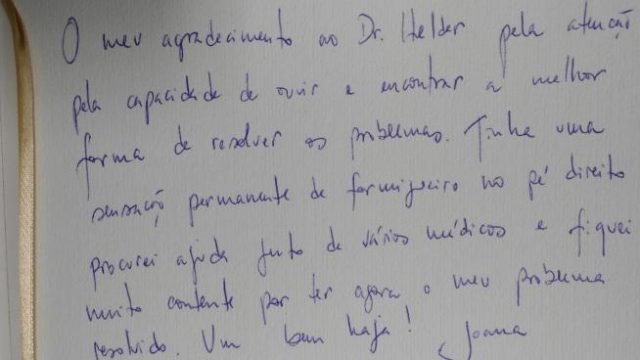 O meu agradecimento ao Dr. Helder pela atenção
pela capacidade de ouvir e encontrar a melhor
forma de resolver os problemas. Tinha uma
sensação permanente de formigueiro no pé direito
procurei ajuda junto de vários médicos e fiquei
muito contente por ter agora o meu problema
resolvido. Um bem haja! Joana